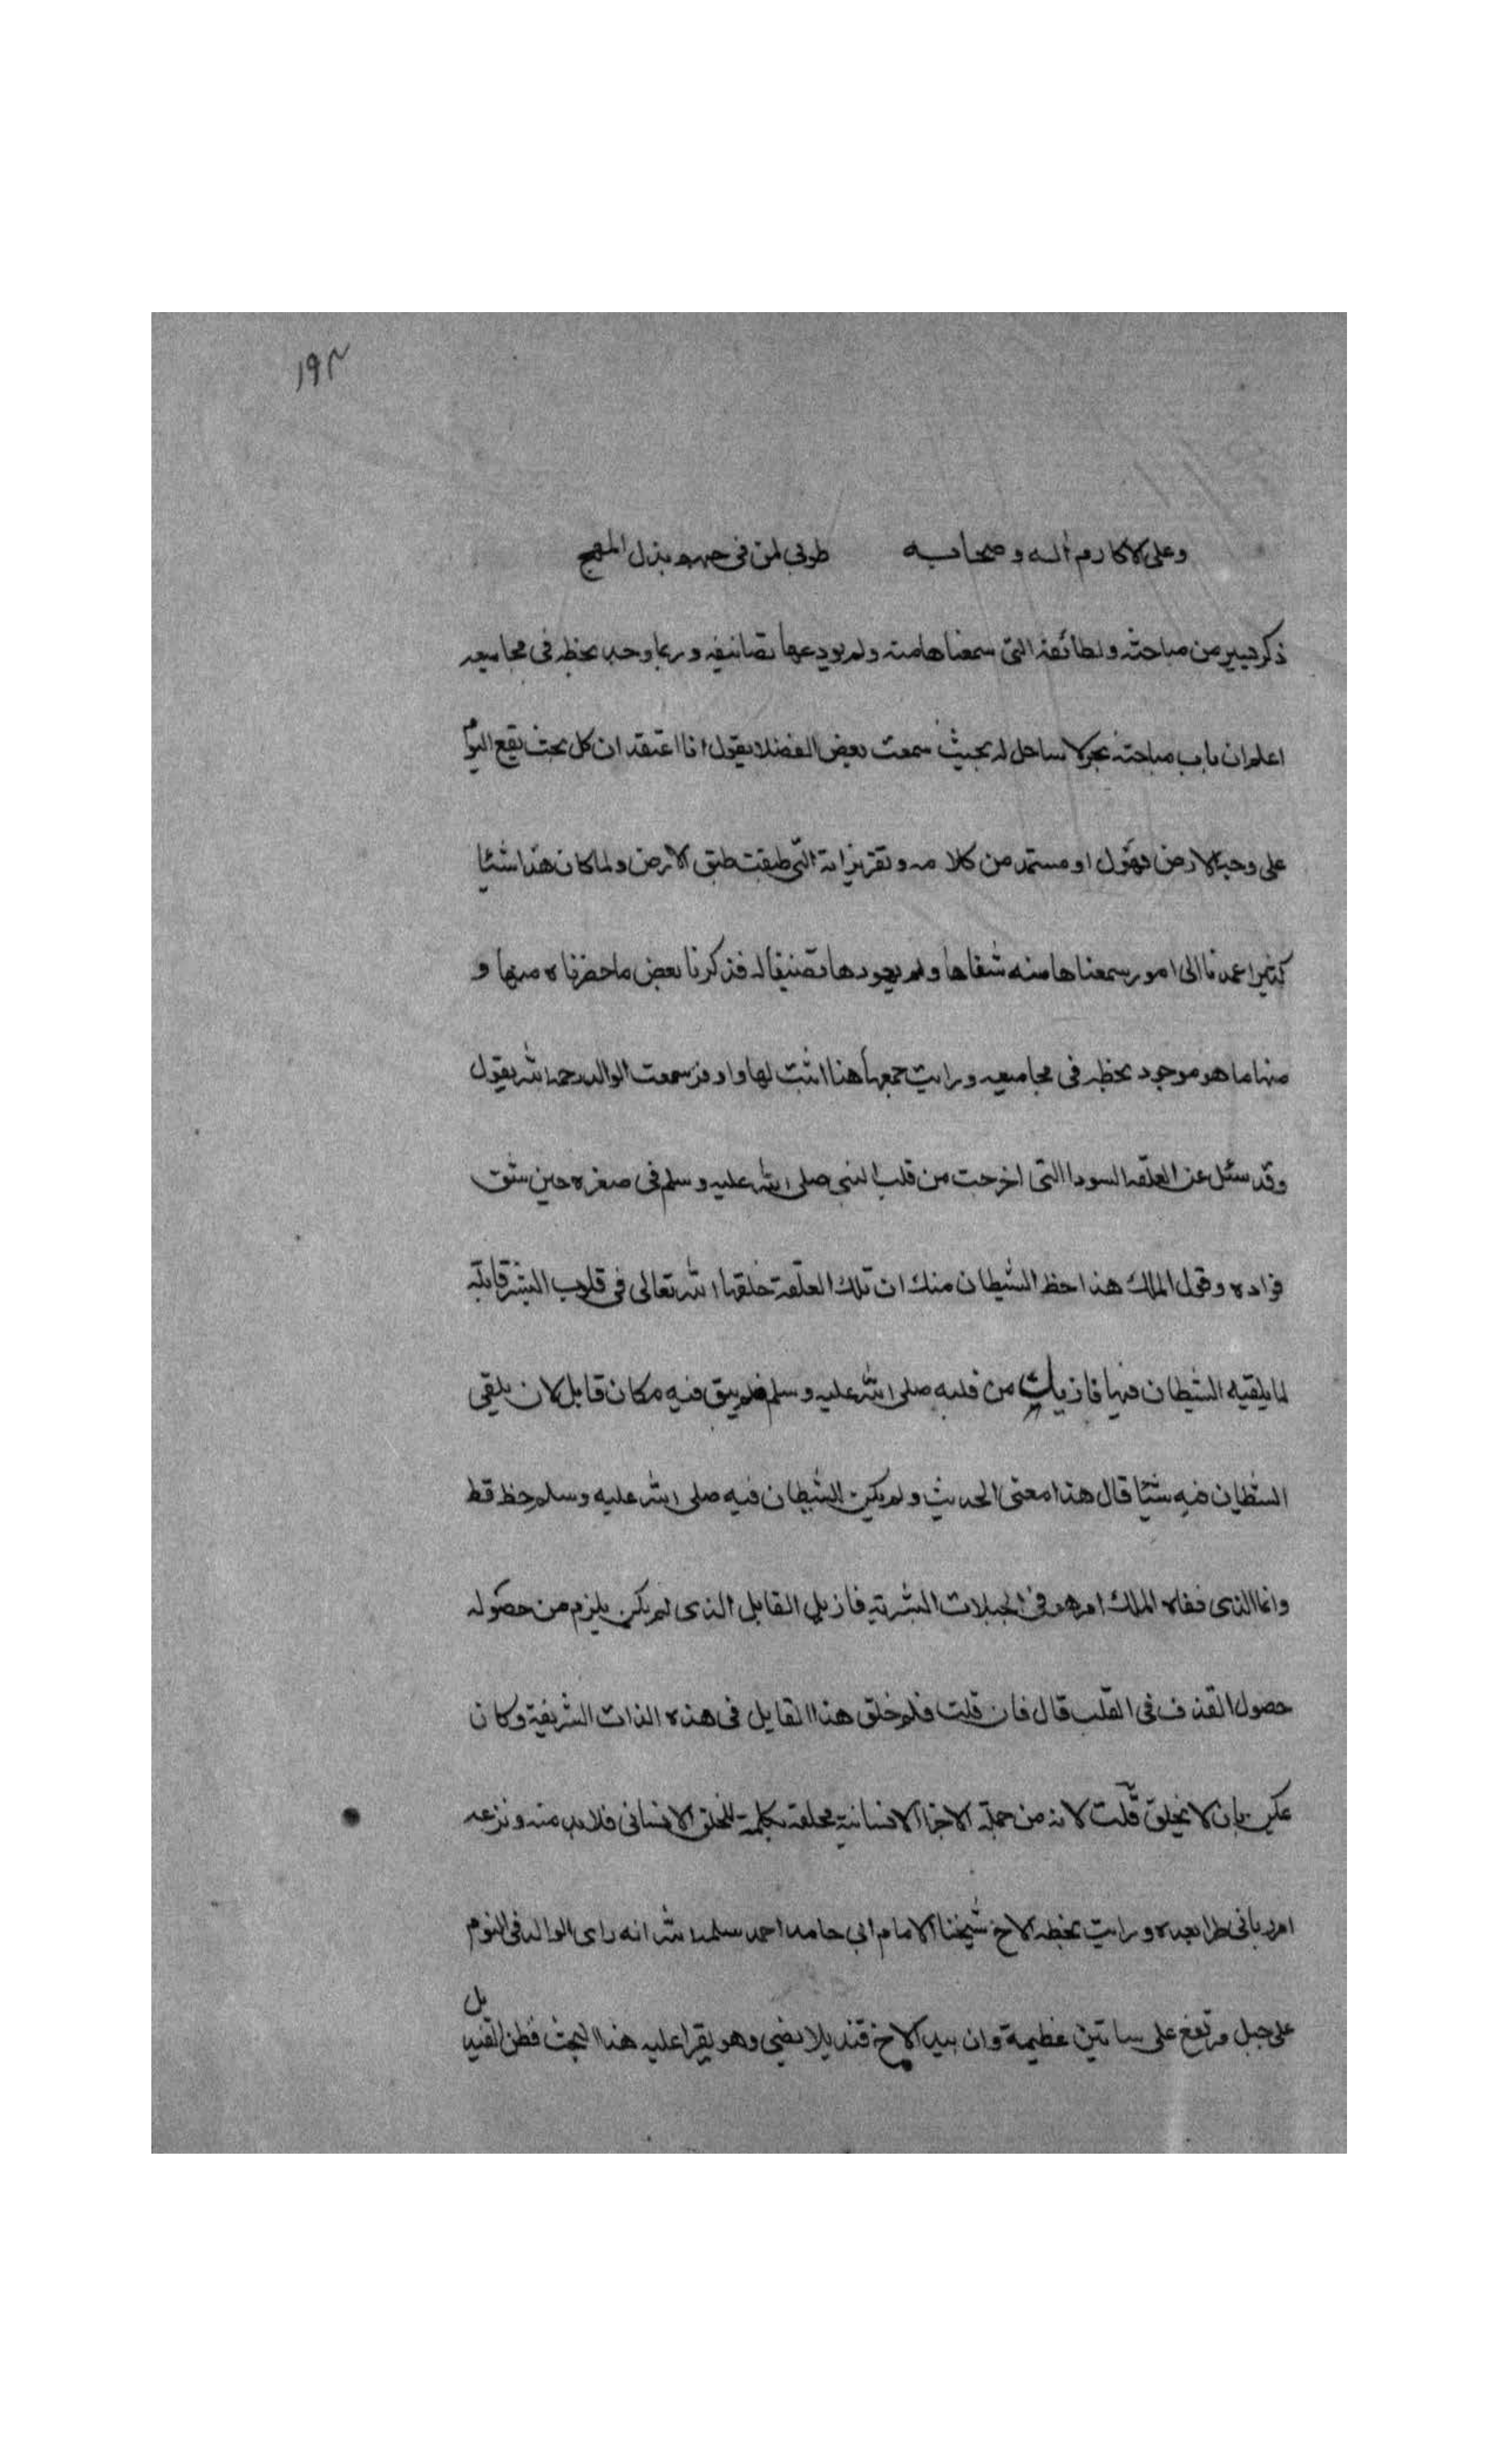 ١٩٣
وعلى الاكارم اله وصحابه طوبى لمن فى حبهم بذل المهج
ذكر يسير من مباحثه ولطائفه التى سمعناها منه ولم يودعها تصانيفه وربما وجد بخطه فى مجاميعه
اعلم ان باب مباحثه بحر لا ساحل له بحيث سمعت بعض الفضلا يقول انا اعتقد ان كل بحث يقع اليوم
على وجه الارض فهو له او مستمد من كلامه وتقريراته التى طبقت طبق الارض ولما كان هذا شئا
كثيرا عمدنا الى امور سمعناها منه شفاها ولم يودعها تصنيفا له فذكرنا بعض ما حضرناه منها و
منها ما هو موجود بخطه فى مجاميعه ورايت جمعها هنا اثبت لها واوفر سمعت الوالد رحمه الله يقول
وقد سئل عن العلقه السودا التى اخرجت من قلب النبى صلى الله عليه وسلم فى صغره حين شق
فواده وقول الملك هذا حظ الشيطان منك ان تلك العلقة خلقها الله تعالى فى قلوب البشر قابلة
لما يلقيه الشيطان فيها فازيلت من قلبه صلى الله عليه وسلم فلم يبق فيه مكان قابل لان يلقى
الشيطان فيه شئا قال هذا معنى الحديث ولم يكن للشيطان فيه صلى الله عليه وسلم حظ قط
وانما الذى نفاه الملك امر هو فى الجبلات البشرية فازيل القابل الذى لم يكن يلزم من حصوله
حصول القذف فى القلب قال فان قلت فلم خلق هذا القابل فى هذه الذات الشريفة وكان
يمكن بان لا يخلق قلت لانه من جملة الاجزا الانسانية مخلقه تكلمة للخلق الانسانى فلا بد منه ونزعه
امر ربانى طرا بعده ورايت بخط الاخ شيخنا الامام ابى حامد احمد سلمه الله انه راى الوالد فى النوم
على جبل مرتفع على بساتين عظيمة وان بيد الاخ قنديلا يضى وهو يقرا عليه هذا البحث فطن القنديل